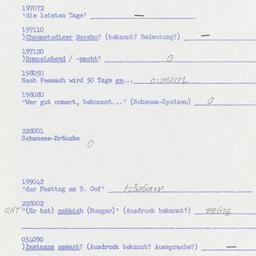 197072
'die letzten Tage' —
197110
)Choometsdiger Borchu? (bekannt? Bedeutung?) —
197120
)Rumpelabend / -nacht? 0
198050
Nach Pessach wird 50 Tage ge...
198080
"Wer gut oomert, bekommt..." (Schwuess-Speisen) 0
228001
Schwuess-Bräuche
0
199042
'der Fasttag am 9. Oof'
228002
"(Er hat) nebbich (Hunger)" (Ausdruck bekannt?)
034090
) (Ausdruck bekannt? Aussprache?) —